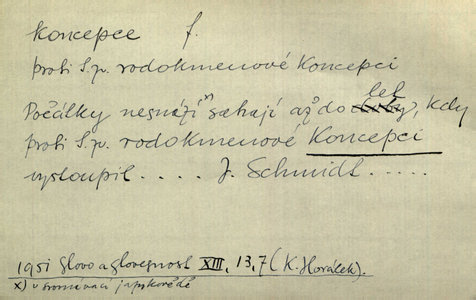 koncepce f.
proti S.zv. rodokmenové Koncepci
Počátky nesnází x) sahají až do doby let, kdy
proti S.zv. rodokmenové Koncepci
vystoupil . . . . . J. Schmidt . . . . .
1951 Slovo a slovesnost XIII, 13,7 (K. Horálek).
x) v srovnávací jazykovědě